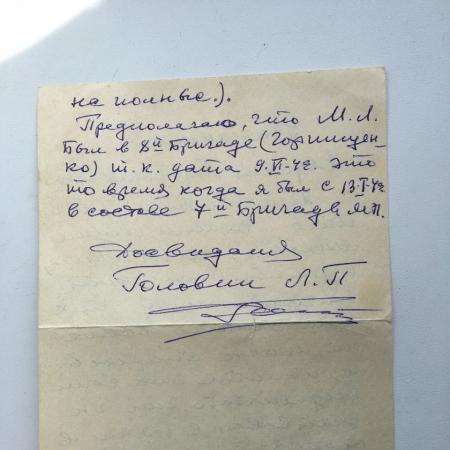 на полные.).
Предполагаю, что М.Л.
был в 8й Бригаде (Горпищен-
ко) т.к. дата 9.VI-42. Это
то время когда я был с 13-I-42
в составе 7й Бригады М.П.
Досвидания
Головин Л.П